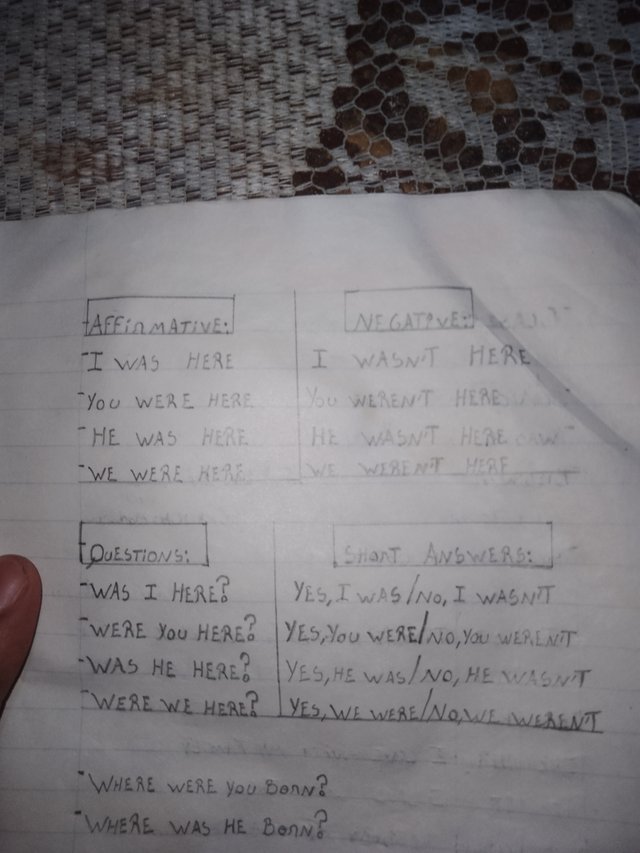 AFFIRMATIVE: NEGATIVE:
-I WAS HERE I WASN'T HERE
-YOU WERE HERE YOU WEREN'T HERE
-HE WAS HERE HE WASN'T HERE
-WE WERE HERE WE WEREN'T HERE
QUESTIONS: SHORT ANSWERS:
-WAS I HERE? YES, I WAS/NO, I WASN'T
-WERE YOU HERE? YES, YOU WERE/NO, YOU WEREN'T
-WAS HE HERE? YES, HE WAS/NO, HE WASN'T
-WERE WE HERE? YES, WE WERE/NO, WE WEREN'T
-WHERE WERE YOU BORN?
-WHERE WAS HE BORN?